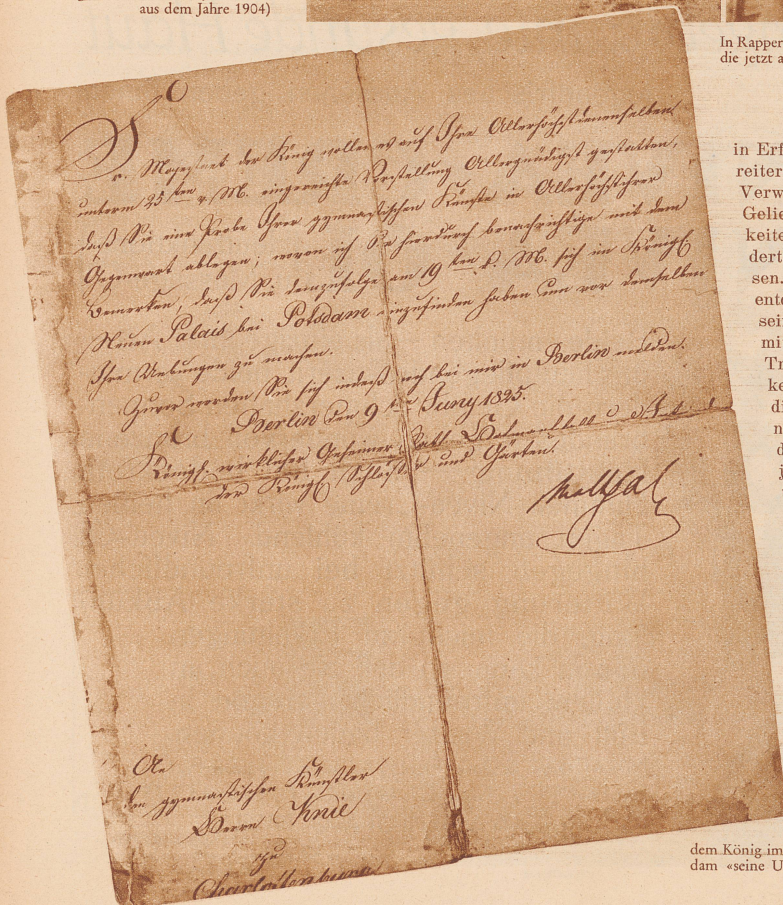 aus dem Jahre 1904)
In Rapper
die jetzt a
Sr. Majestaet der König wollen es auf Ihre Allerhöchstdenenselben
unterm 25ten v. M. eingereichte Vorstellung Allergnädigst gestatten,
daß Sie eine Probe Ihrer gymnastischen Künste in Allerhöchstihrer
Gegenwart ablegen; wovon ich Sie hierdurch benachrichtige mit dem
Bemerken, daß Sie demzufolge am 19ten d. M. sich im Königl
Neuen Palais bei Potsdam einzufinden haben um vor demselben
Ihre Uebungen zu machen.
Zuvor werden Sie sich indeß noch bei mir in Berlin melden.
Berlin den 9ten Juny 1825.
Königl. wirklicher Geheimer Rath
der Königl Schlösser und Gärten.
Maltzahn
An
den gymnastischen Künstler
Herrn Knie
zu
Charlottenburg
in Erf
reiter
Verw
Gelie
keite
dert
sen.
ente
sein
mi
Tr
ke
di
n
d
j
dem König im
dam «seine U